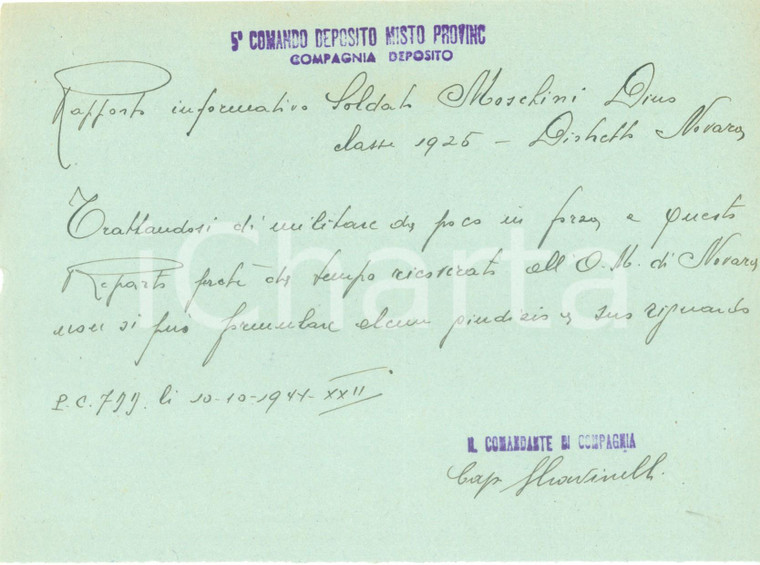 5° COMANDO DEPOSITO MISTO PROVINC
COMPAGNIA DEPOSITO
Rapporto informativo Soldato Moschini Dino
classe 1925 - Distretto Novara
Trattandosi di militare da poco in forza a questo
Reparto perchè da tempo ricoverato all'O.M. di Novara
non si può formulare alcun giudizio a suo riguardo
P.C. 799. li 10-10-1944-XXII
IL COMANDANTE DI COMPAGNIA
Cap.
iCharta